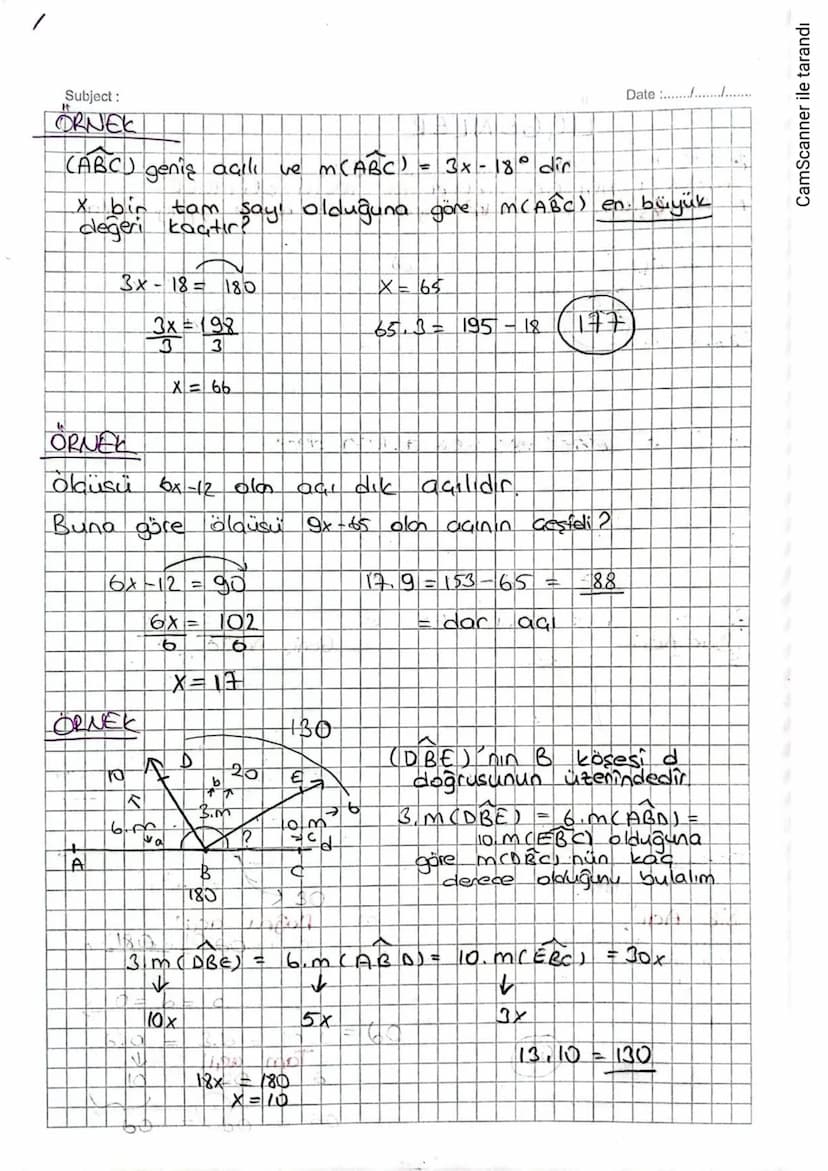 /
CamScanner ile tarandı
Subject :
Date :......./......./.......
ÖRNEK
(ABC) geniş açılı ve m(ABC) = 3x - 18° dir
x bir tam sayı olduğuna göre, m(ABC) en büyük
değeri kaçtır?
3x - 18 = 180
3x = 198
3 3
x = 66
x = 65
65.3 = 195 - 18 177
ÖRNEK
Ölçüsü 6x-12 olan açı dik açılıdır.
Buna göre ölçüsü 9x-65 olan açının çeşidi?
6x-12 = 90
6x = 102
6 6
x = 17
17.9 = 153 - 65 = 88
= dar açı
ÖRNEK
130
D
20
E
10
b
3.m
6.m
a
?
10.m
b
c
d
A
B
C
180
(DBE)'nin B köşesi d
doğrusunun üzerindedir
3.m(DBE) = 6.m(ABD) =
10.m(EBC) olduğuna
göre m(DBC)'nün kaç
derece olduğunu bulalım
3.m(DBE) = 6.m(ABD) = 10.m(EBC) = 30x
10x 5x 3x
18x = 180
x = 10
13.10 = 130